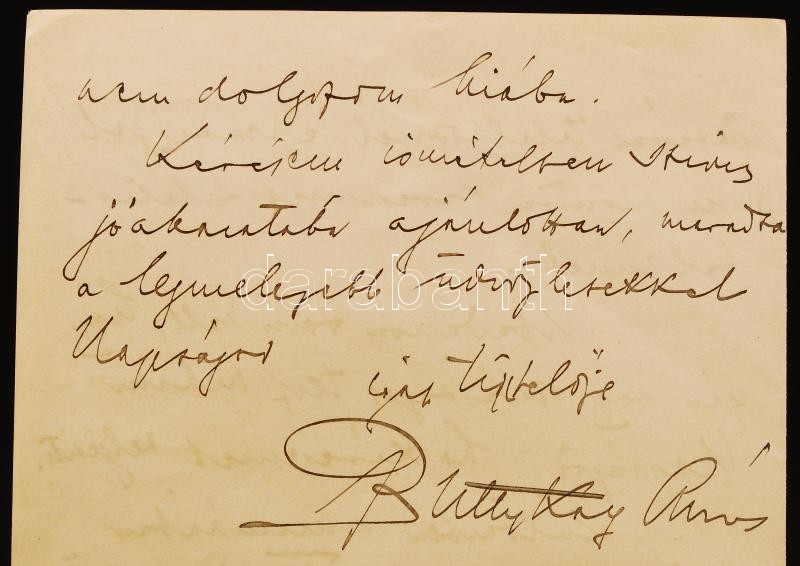 nem dolgozom hiába.
Kérésem ismételten szives
jóakaratába ajánlottan, maradok
a legmelegebb üdvözletekkel
Nagyságod
igaz tisztelője
Buttykay Ákos
darabanth